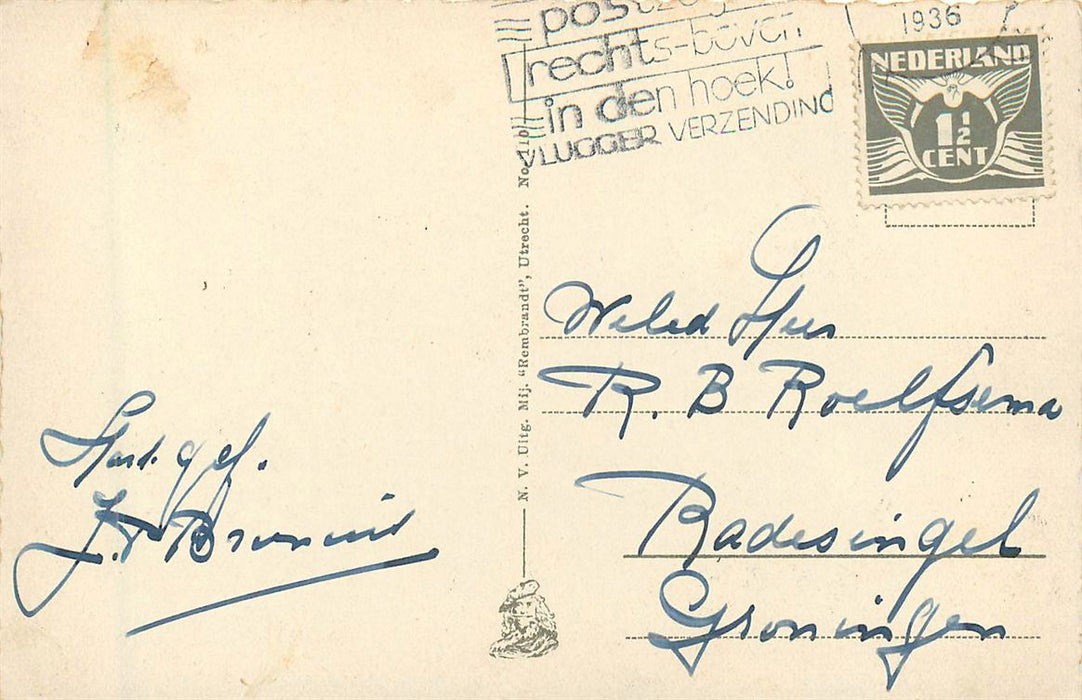 1936
rechts-boven
in den hoek!
VLUGGER VERZENDING
NEDERLAND
1½
CENT
N. V. Uitg. Mij. "Rembrandt", Utrecht. No.
WelEd Heer
R. B Roelfsema
Radesingel
Groningen
Hart. gef.